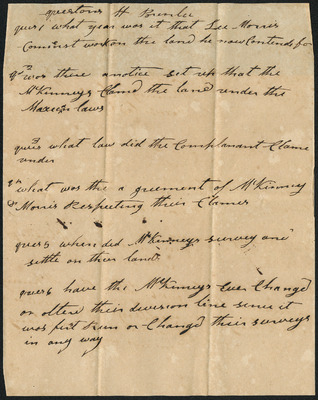 questions H Brinlee
quers what year was it that Lee Morris
Comenst work on the land he now Contends for
was there a notice set up that the
McKinneys Clamd the land under the
Maxecn laws
quers what law did the Complanant Clame
under
what was the a greement of McKinney
& Morris Respecting their Clames
quers when did McKinneys survey and
settle on their land
quers have the McKinneys Ever Changed
or alterd their devision line since it
was first Run or Changed their surveys
in any way